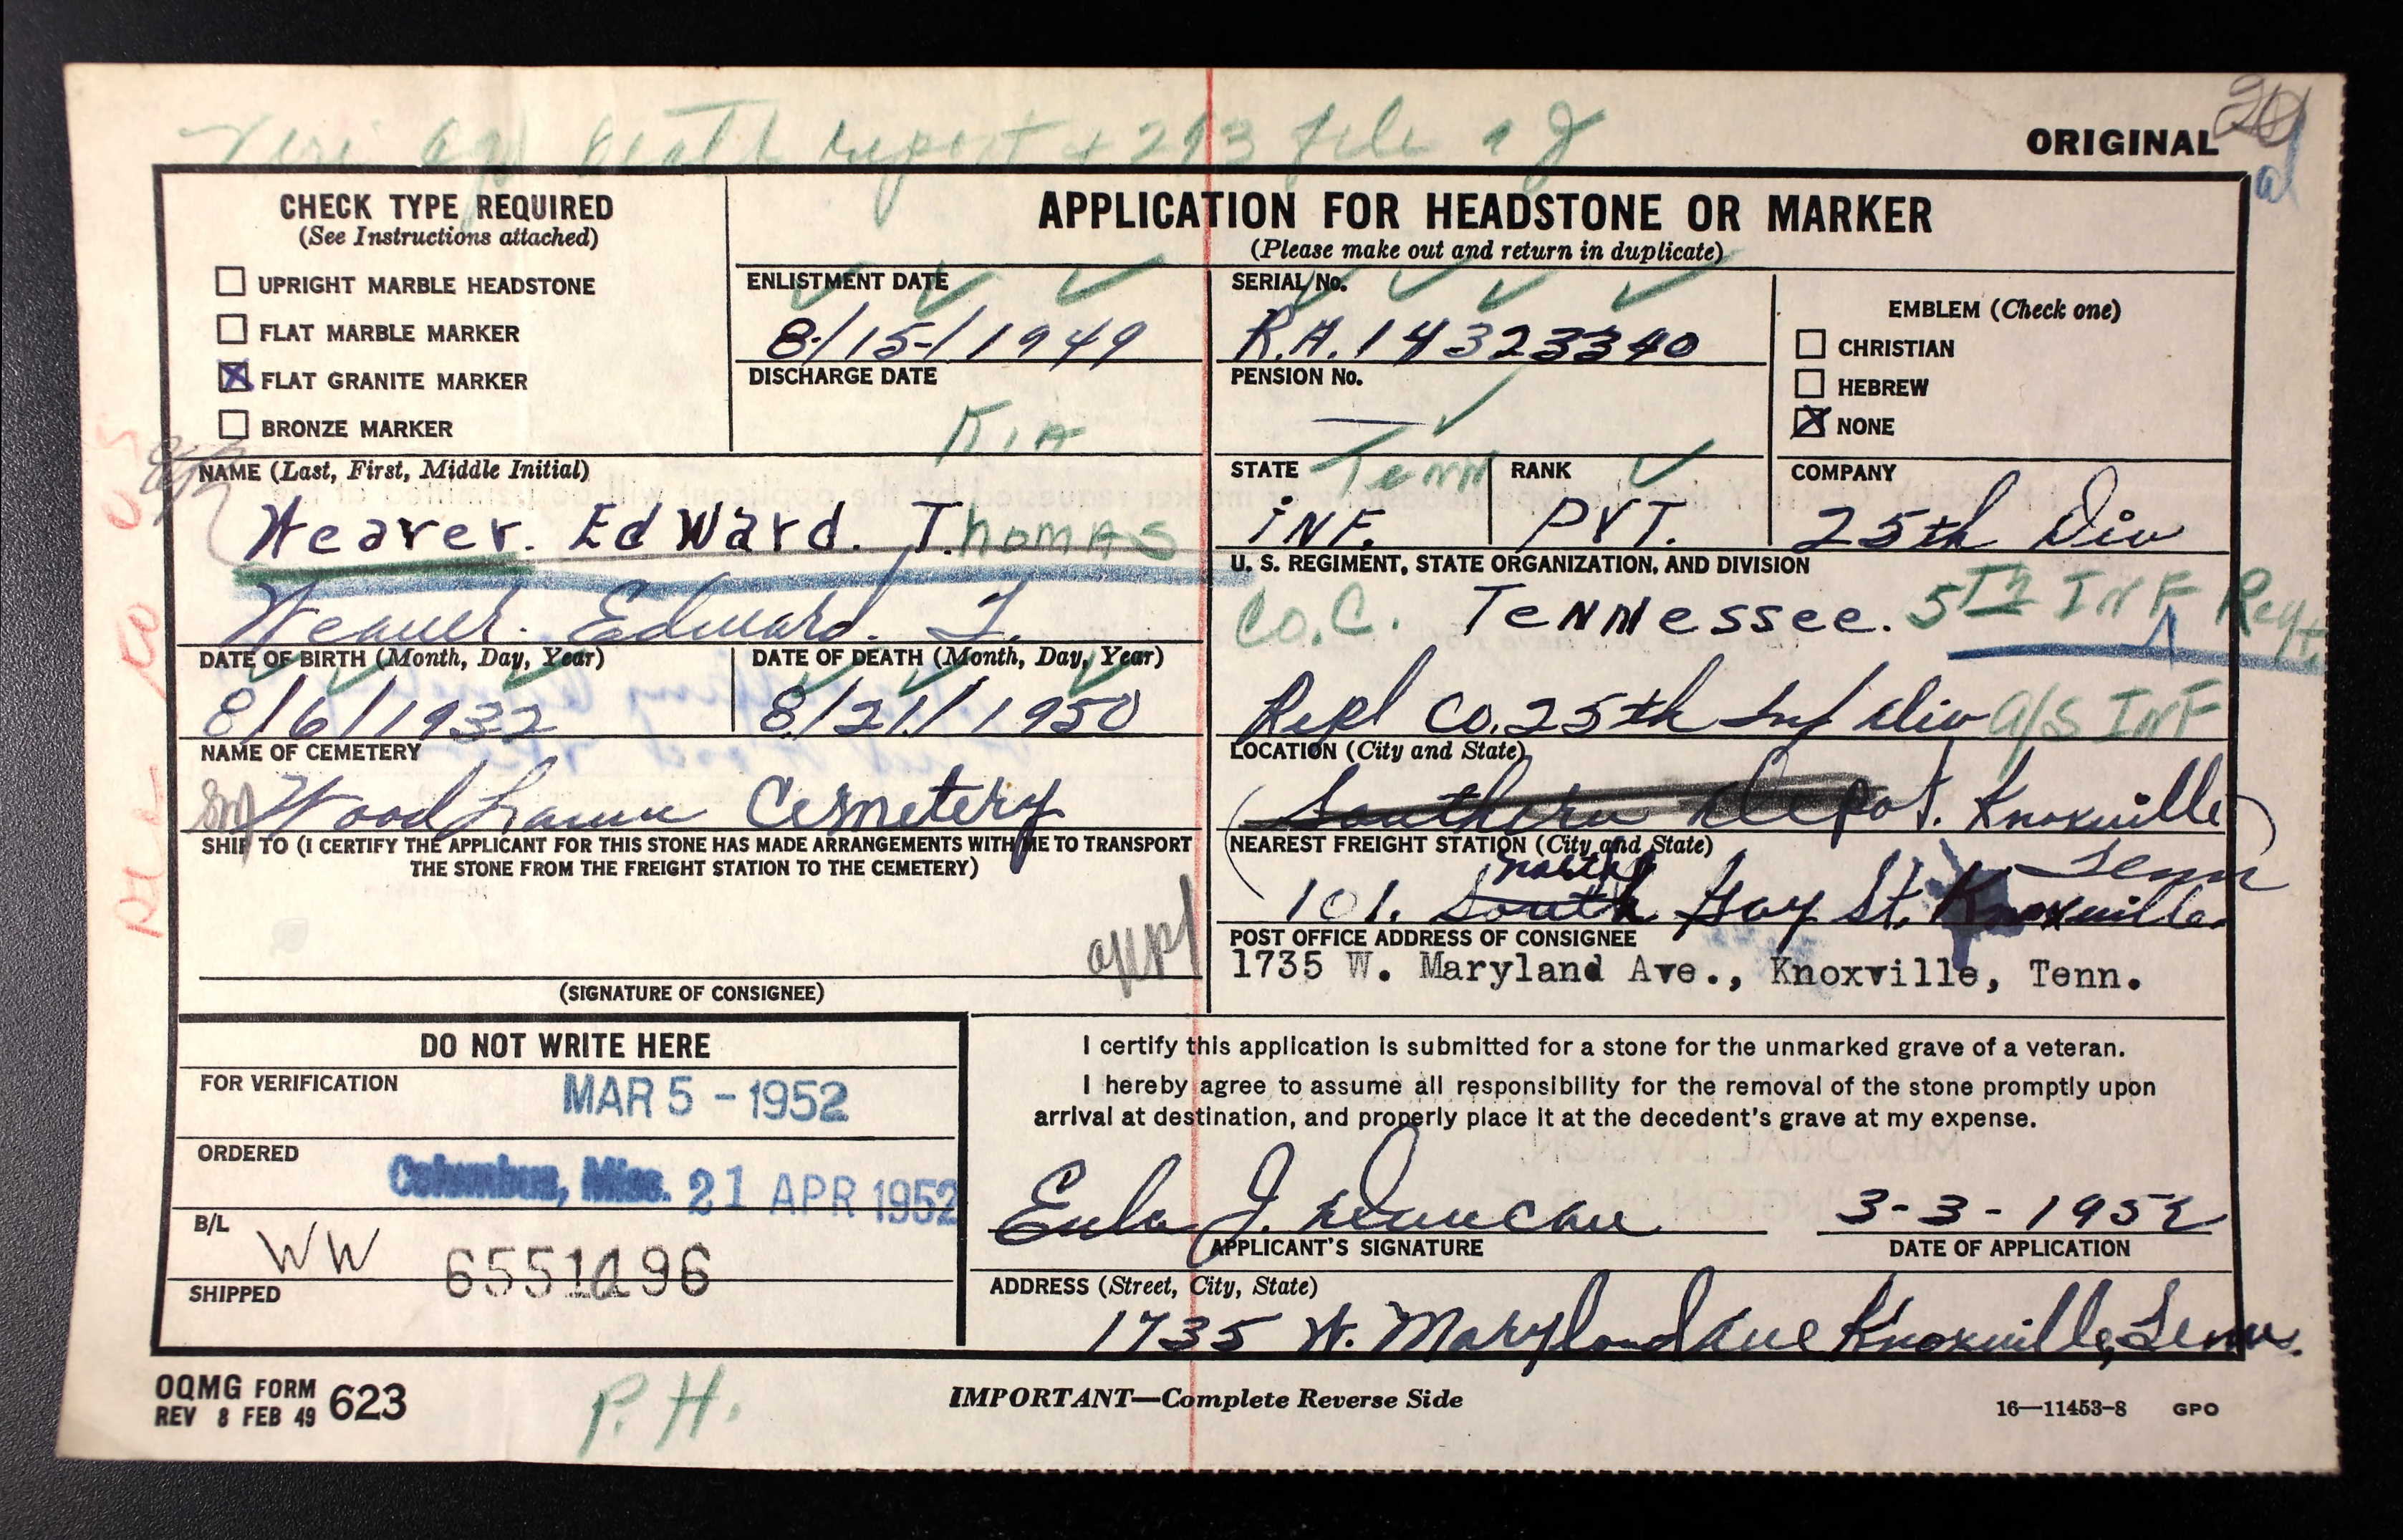 Veri ago Death report + 293 file
ORIGINAL
CHECK TYPE REQUIRED
(See Instructions attached)
UPRIGHT MARBLE HEADSTONE
FLAT MARBLE MARKER
FLAT GRANITE MARKER
BRONZE MARKER
APPLICATION FOR HEADSTONE OR MARKER
(Please make out and return in duplicate)
ENLISTMENT DATE
8/15/1949
DISCHARGE DATE
KIA
SERIAL No.
R.A.14323340
PENSION No.
EMBLEM (Check one)
CHRISTIAN
HEBREW
NONE
NAME (Last, First, Middle Initial)
Weaver. Edward. Thomas
Weaver. Edward. T.
STATE Tenn
INF.
RANK
PVT.
COMPANY
25th Div
U. S. REGIMENT, STATE ORGANIZATION, AND DIVISION
Co.C. Tennessee. 5th INF Regt.
Repl Co. 25th Inf div a/s INF
DATE OF BIRTH (Month, Day, Year)
8/6/1932
DATE OF DEATH (Month, Day, Year)
8/21/1950
NAME OF CEMETERY
Wood Lawn Cemetery
LOCATION (City and State)
Southern Depot. Knoxville
Tenn
SHIP TO (I CERTIFY THE APPLICANT FOR THIS STONE HAS MADE ARRANGEMENTS WITH ME TO TRANSPORT
THE STONE FROM THE FREIGHT STATION TO THE CEMETERY)
appl
(SIGNATURE OF CONSIGNEE)
NEAREST FREIGHT STATION (City and State)
north
101. South Gay St. Knoxville
POST OFFICE ADDRESS OF CONSIGNEE
1735 W. Maryland Ave., Knoxville, Tenn.
DO NOT WRITE HERE
FOR VERIFICATION
MAR 5 - 1952
ORDERED
Columbus, Miss. 21 APR 1952
B/L
WW 6551196
SHIPPED
I certify this application is submitted for a stone for the unmarked grave of a veteran.
I hereby agree to assume all responsibility for the removal of the stone promptly upon
arrival at destination, and properly place it at the decedent's grave at my expense.
Eula J. Duncan
APPLICANT'S SIGNATURE
3-3-1952
DATE OF APPLICATION
ADDRESS (Street, City, State)
1735 W. Maryland ave Knoxville, Tenn.
OQMG FORM 623
REV 8 FEB 49
P.H.
IMPORTANT—Complete Reverse Side
16—11453-8 GPO